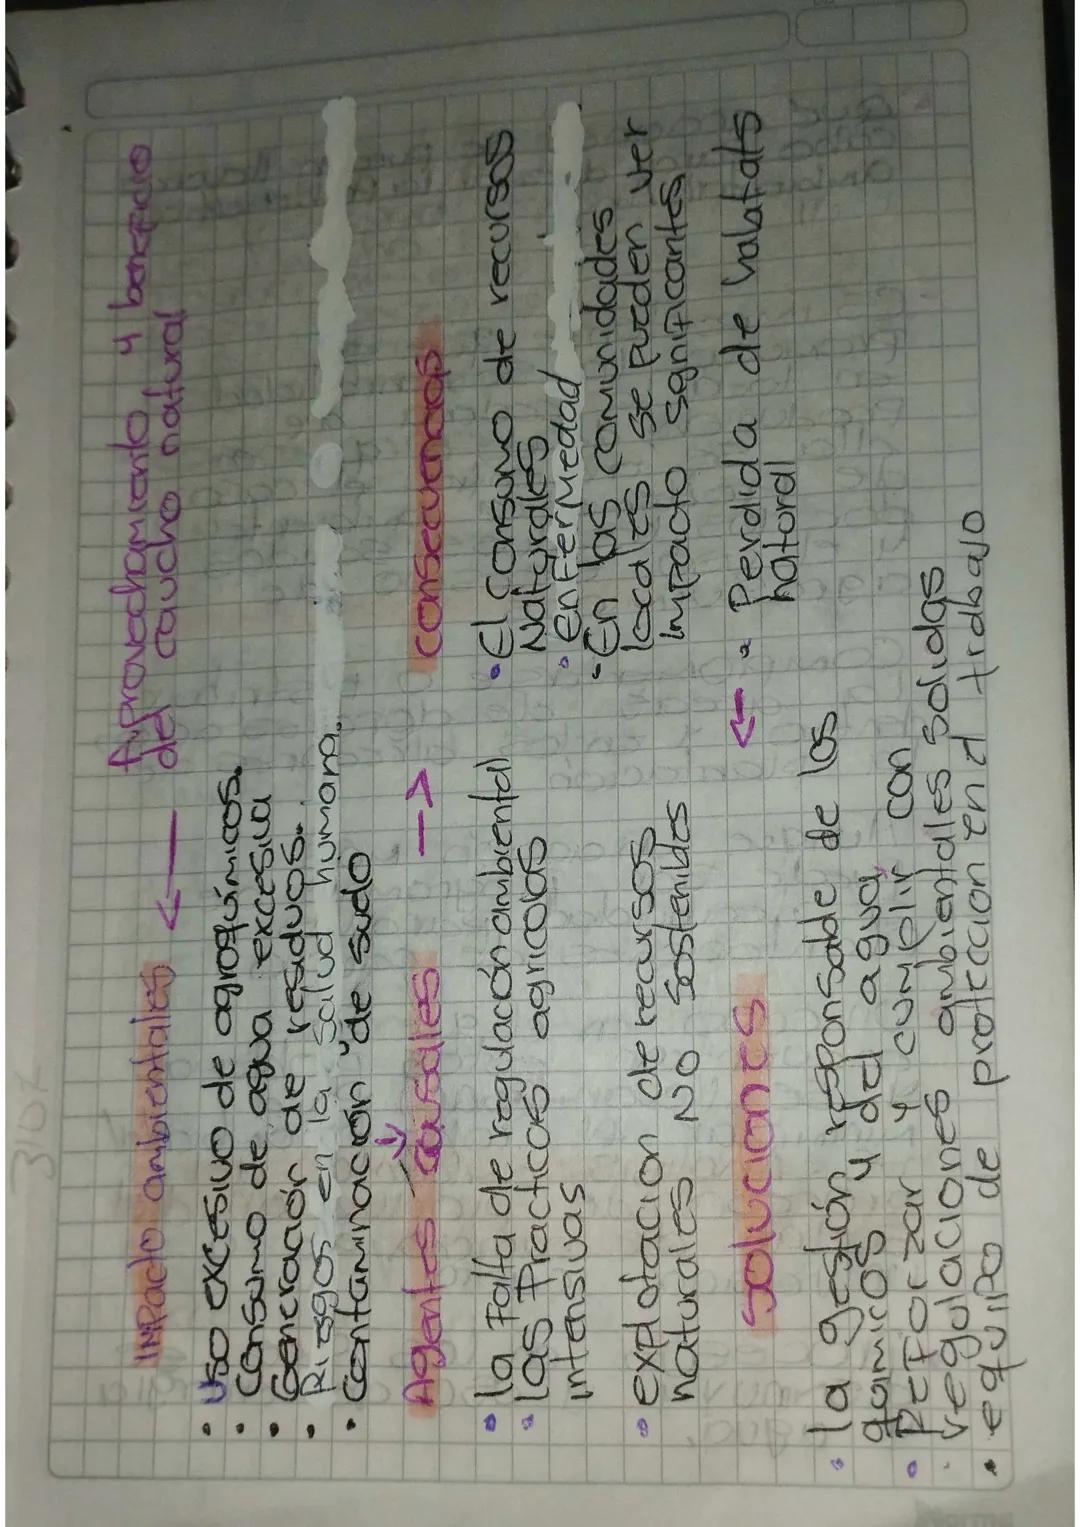 Aprovechamiento y beneficio
del caucho natural
Impacto ambientales
• Uso excesivo de agroquímicos.
• Consumo de agua excesiva
• Generación de residuos.
• Riesgos en la salud humana.
• Contaminación de suelo
Agentes causales
• la Falta de regulación ambiental
• las Practicas agricolas
intensivas
• explotacion de recursos
naturales NO sostenibles
consecuencias
• El consumo de recursos
Naturales
• enfermedad
• En las comunidades
locales se pueden ver
impacto significantes
• Perdida de habitats
natural
soluciones
• la gestión responsable de los
químicos y del agua
• reforzar y cumplir con
regulaciones ambientales solidas
• equipo de protección en el trabajo